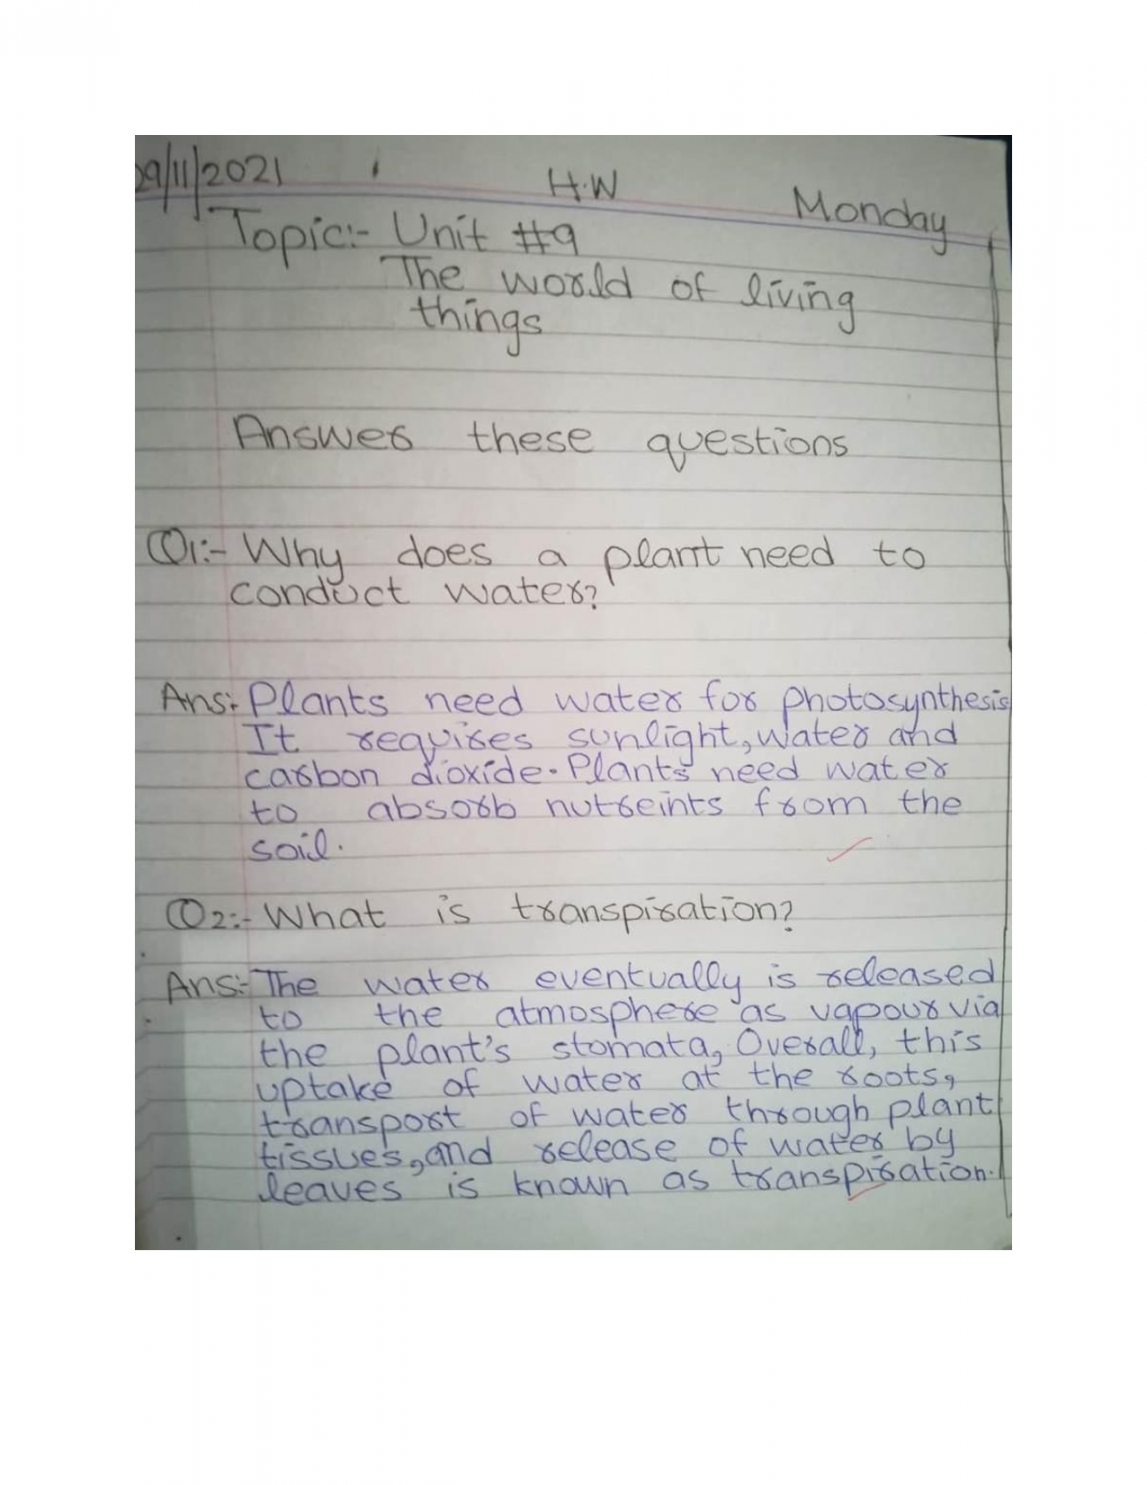 29/11/2021 H.W Monday
Topic:- Unit #9
The world of living
things
Answer these questions
Q1:- Why does a plant need to
conduct water?
Ans: Plants need water for photosynthesis
It requires sunlight, water and
carbon dioxide. Plants need water
to absorb nutreints from the
soil.
Q2:- What is transpiration?
Ans:- The water eventually is released
to the atmosphere as vapour via
the plant's stomata, Overall, this
uptake of water at the roots,
transport of water through plant
tissues, and release of water by
leaves is known as transpiration.